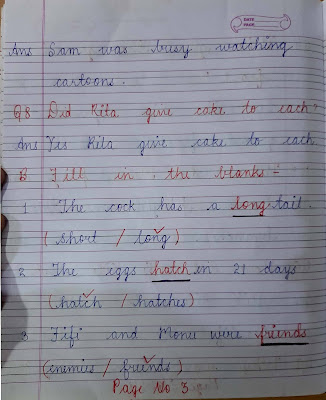 DATE
PAGE
Ans Sam was busy watching
cartoons.
Q8 Did Rita give cake to each?
Ans Yes Rita give cake to each
B Fill in the blanks:-
1 The cock has a long tail.
(short / long)
2 The eggs hatch in 21 days
(hatch / hatches)
3 Fifi and Monu were friends
(enemies / friends)
Page No 3